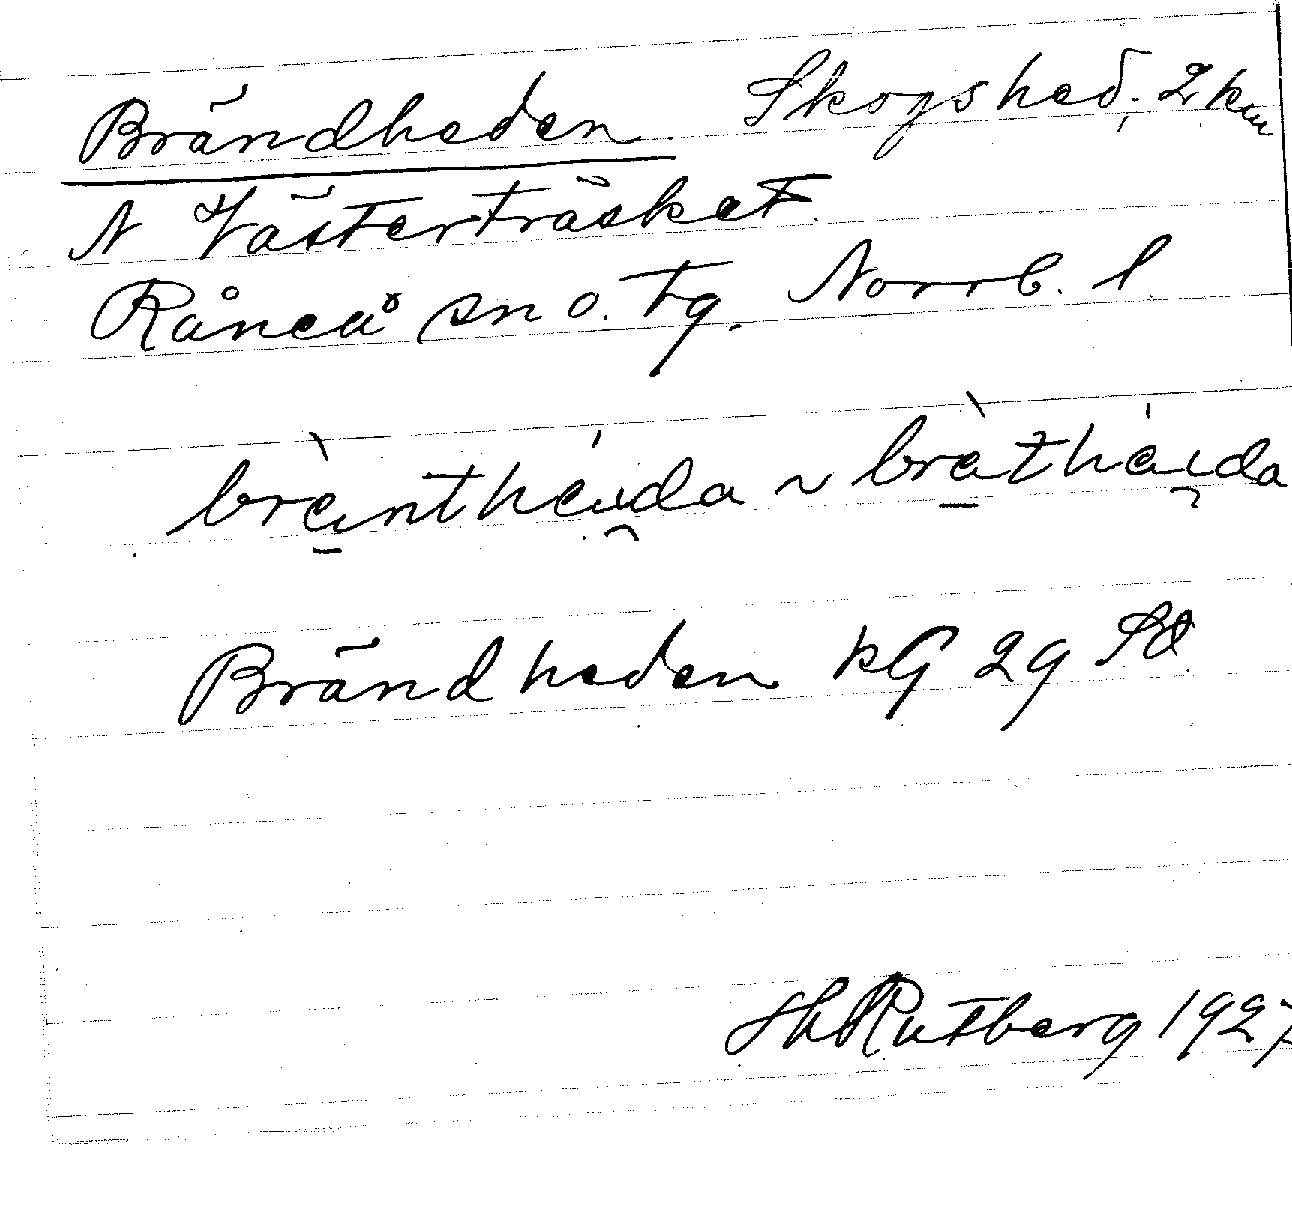 Brändheden. Skogshed, 2 km
N Västerträsket.
Råneå sn o. tg. Norrb. l.
brä̀nthéi̯da ~ brä̀théi̯da
Brändheden KG 29 SO
H Rutberg 1927